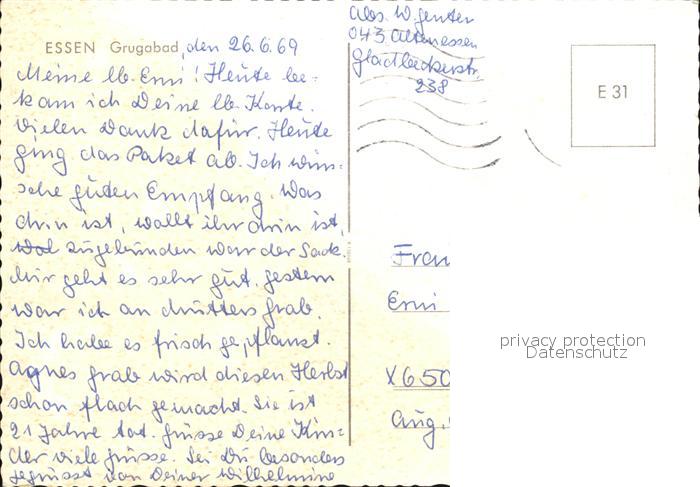 Abs. W. Genter
043 Altenessen
Gladbeckerstr.
238
ESSEN Grugabad, den 26.6.69
Meine lb. Erni! Heute be-
kam ich Deine lb. Karte.
Vielen Dank dafür. Heute
ging das Paket ab. Ich wün-
sche guten Empfang. Was
drin ist, wollt ihr drin ist,
wol zugebunden war der Sack.
Mir geht es sehr gut. gestern
war ich an Mutters Grab.
Ich habe es frisch gepflanzt.
Agnes Grab wird diesen Herbst
schon flach gemacht. Sie ist
21 Jahre tot. Grüsse Deine Kin-
der viele Grüsse. Sei Du besonders
gegrüsst von Deiner Wilhelmine
E 31
Frau
Erni
X650
Aug.
privacy protection
Datenschutz